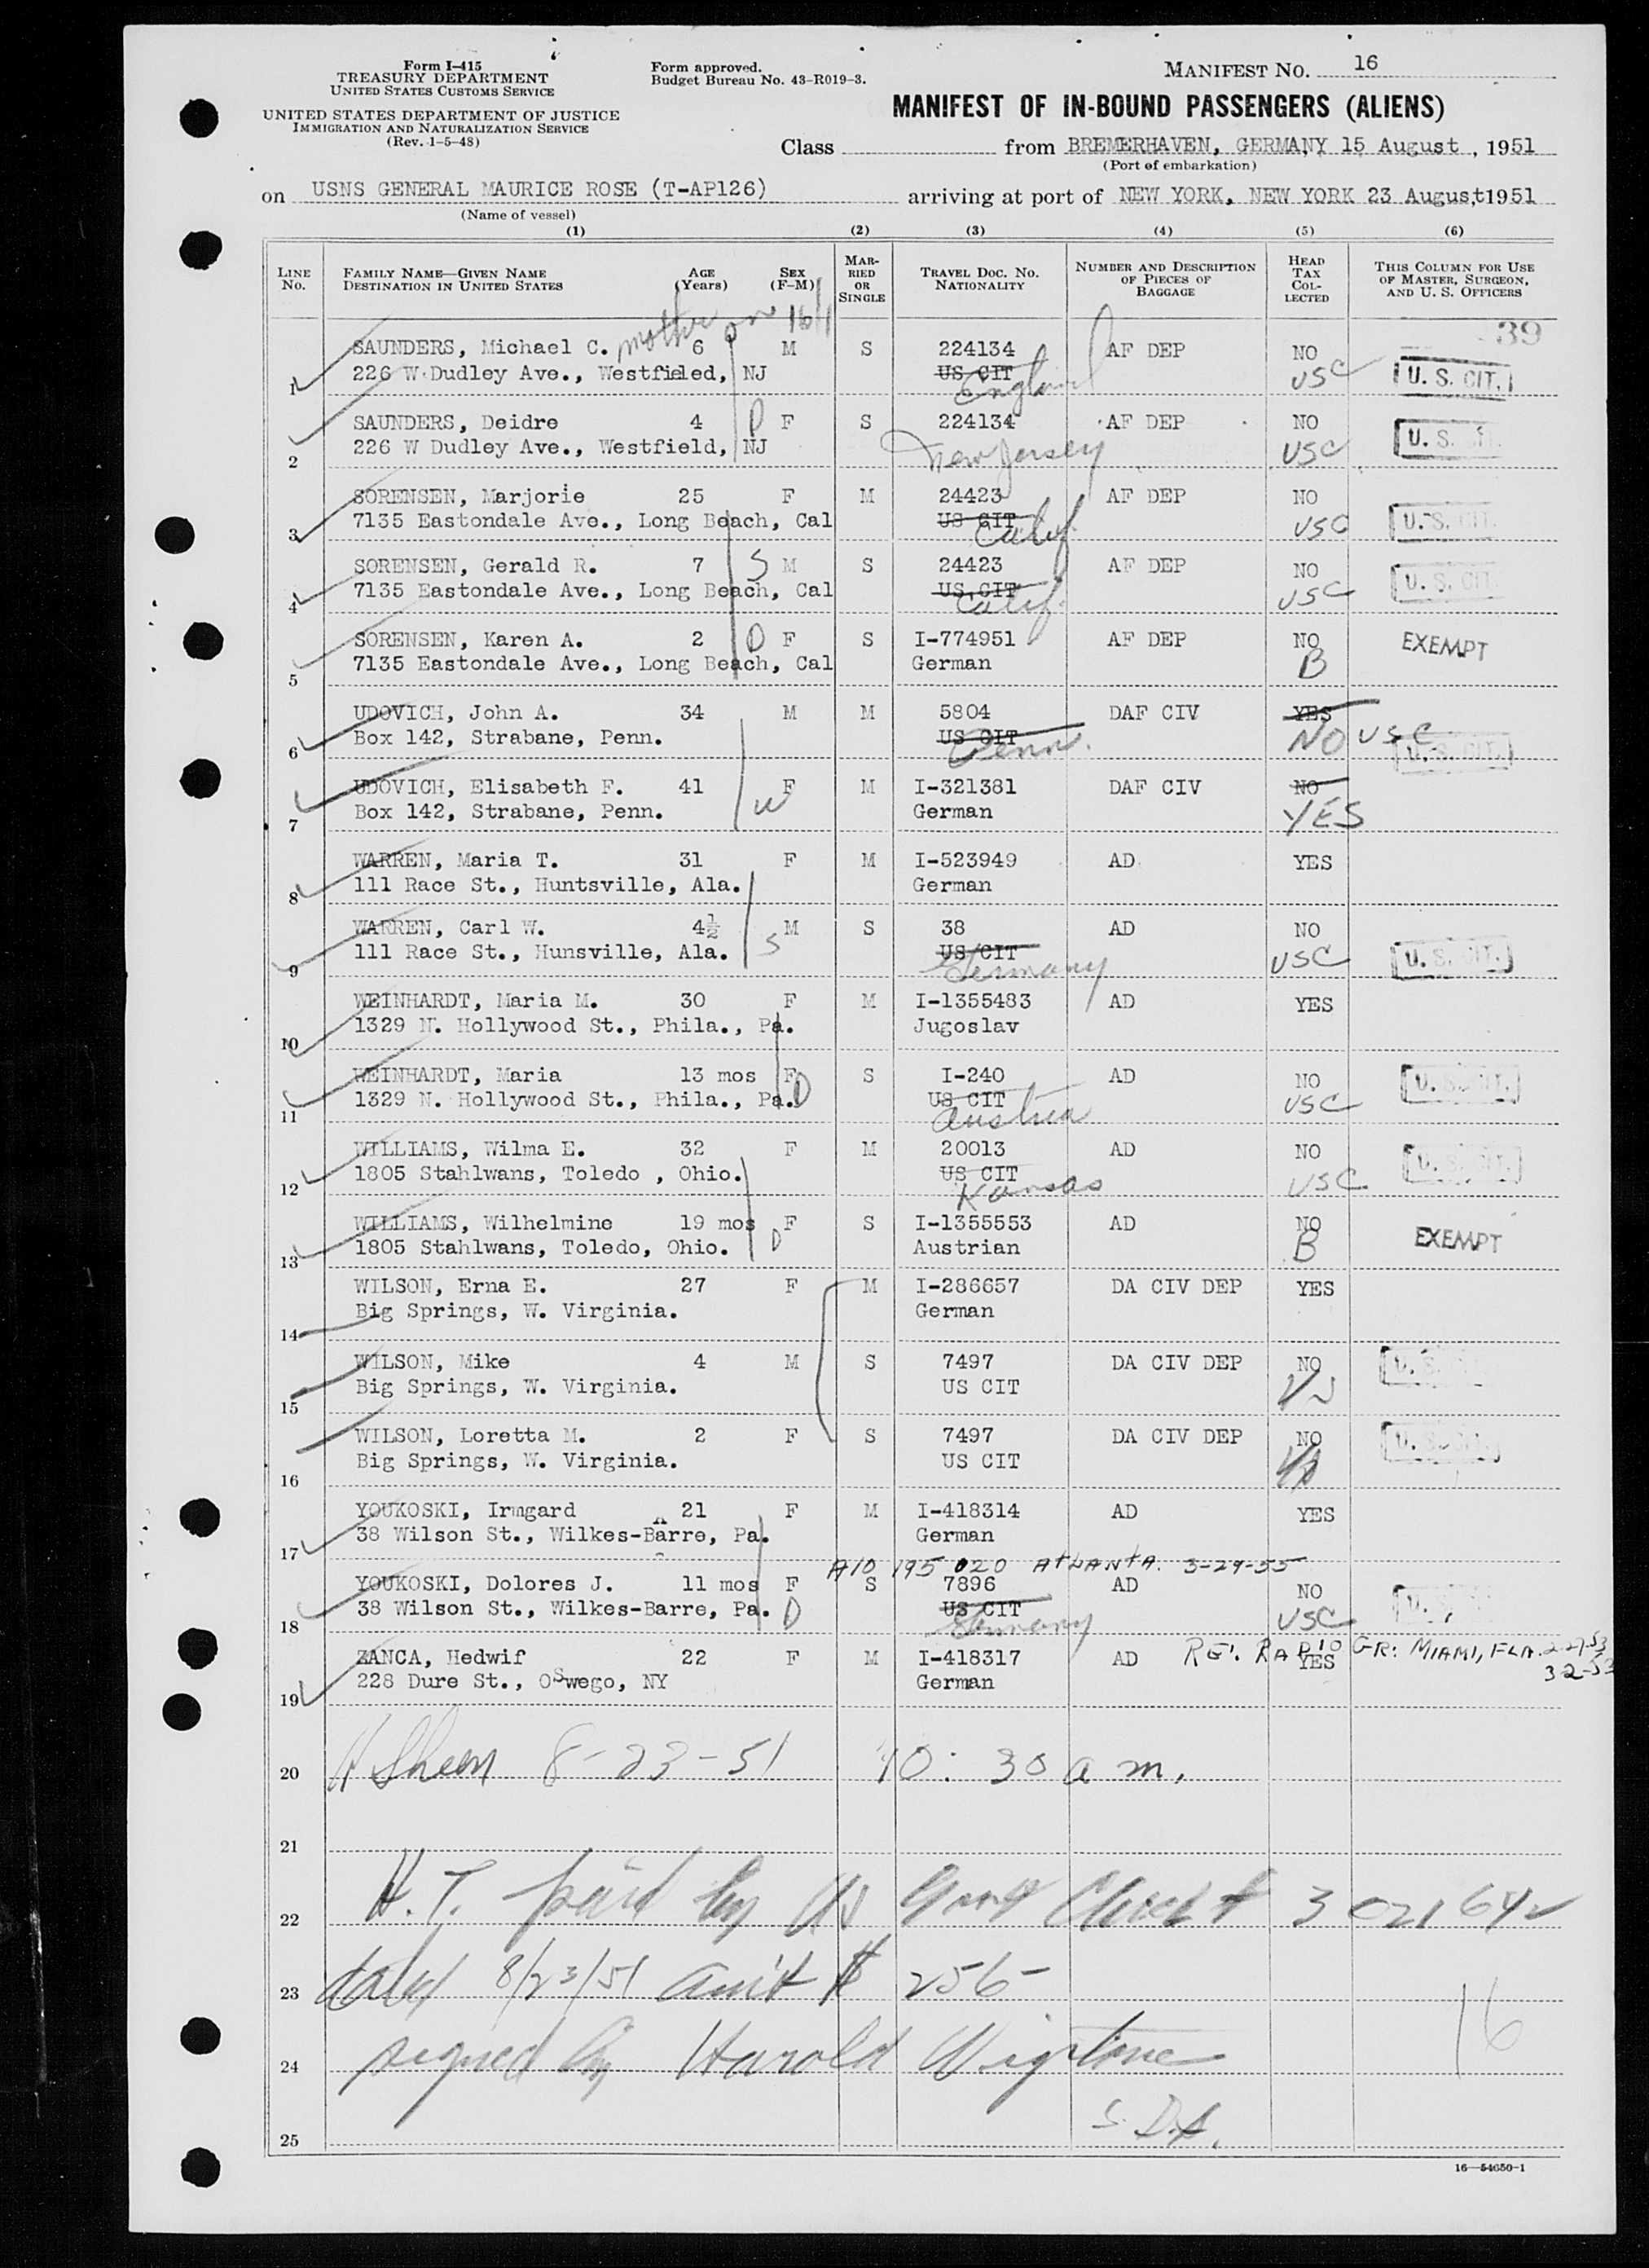 Form I-415
TREASURY DEPARTMENT
UNITED STATES CUSTOMS SERVICE
UNITED STATES DEPARTMENT OF JUSTICE
IMMIGRATION AND NATURALIZATION SERVICE
(Rev. 1-5-48)
Form approved.
Budget Bureau No. 43-R019-3.
MANIFEST NO. 16
MANIFEST OF IN-BOUND PASSENGERS (ALIENS)
Class from BREMERHAVEN, GERMANY 15 August, 1951
(Port of embarkation)
on USNS GENERAL MAURICE ROSE (T-AP126) arriving at port of NEW YORK, NEW YORK 23 August, 1951
(Name of vessel)
(1) (2) (3) (4) (5) (6)
LINE NO. FAMILY NAME—GIVEN NAME DESTINATION IN UNITED STATES AGE (Years) SEX (F-M) MARRIED OR SINGLE TRAVEL DOC. NO. NATIONALITY NUMBER AND DESCRIPTION OF PIECES OF BAGGAGE HEAD TAX COLLECTED THIS COLUMN FOR USE OF MASTER, SURGEON, AND U. S. OFFICERS
mother on 16/1 39
SAUNDERS, Michael C. 6 M S 224134 AF DEP NO
1 226 W Dudley Ave., Westfieled, NJ US CIT England USC U. S. CIT.
SAUNDERS, Deidre 4 D F S 224134 AF DEP NO U. S.
2 226 W Dudley Ave., Westfield, NJ New Jersey USC
SORENSEN, Marjorie 25 F M 24423 AF DEP NO
3 7135 Eastondale Ave., Long Beach, Cal US CIT Calif. USC U. S. CIT.
SORENSEN, Gerald R. 7 S M S 24423 AF DEP NO
4 7135 Eastondale Ave., Long Beach, Cal US CIT Calif. USC U. S. CIT.
SORENSEN, Karen A. 2 D F S I-774951 AF DEP NO EXEMPT
5 7135 Eastondale Ave., Long Beach, Cal German B
UDOVICH, John A. 34 M M 5804 DAF CIV YES
6 Box 142, Strabane, Penn. US CIT Penn. NO USC U. S. CIT.
UDOVICH, Elisabeth F. 41 F M I-321381 DAF CIV NO
7 Box 142, Strabane, Penn. W German YES
WARREN, Maria T. 31 F M I-523949 AD YES
8 111 Race St., Huntsville, Ala. German
WARREN, Carl W. 4½ M S 38 AD NO
9 111 Race St., Hunsville, Ala. S US CIT Germany USC U. S. CIT.
WEINHARDT, Maria M. 30 F M I-1355483 AD YES
10 1329 N. Hollywood St., Phila., Pa. Jugoslav
WEINHARDT, Maria 13 mos F S I-240 AD NO U. S. CIT.
11 1329 N. Hollywood St., Phila., Pa. D US CIT Austria USC
WILLIAMS, Wilma E. 32 F M 20013 AD NO U. S. CIT.
12 1805 Stahlwans, Toledo , Ohio. US CIT Kansas USC
WILLIAMS, Wilhelmine 19 mos F S I-1355553 AD NO EXEMPT
13 1805 Stahlwans, Toledo, Ohio. D Austrian B
WILSON, Erna E. 27 F M I-286657 DA CIV DEP YES
14 Big Springs, W. Virginia. German
WILSON, Mike 4 M S 7497 DA CIV DEP NO U. S.
15 Big Springs, W. Virginia. US CIT
WILSON, Loretta M. 2 F S 7497 DA CIV DEP NO U. S.
16 Big Springs, W. Virginia. US CIT
YOUKOSKI, Irmgard 21 F M I-418314 AD YES
17 38 Wilson St., Wilkes-Barre, Pa. German
A10 195 020 ATLANTA. 3-29-55
YOUKOSKI, Dolores J. 11 mos F S 7896 AD NO U. S.
18 38 Wilson St., Wilkes-Barre, Pa. D US CIT Germany USC
ZANCA, Hedwif 22 F M I-418317 AD YES RE: RADIO GR: MIAMI, FLA. 2-27-53
19 228 Dure St., Oswego, NY German 3-2-53
20 Sheen 8-23-51 10:30 a m.
21
22 H.T. paid by US Govt Check # 302164
23 dated 8/23/51 amt $ 256- 16
24 signed by Harold
25
16—54650-1